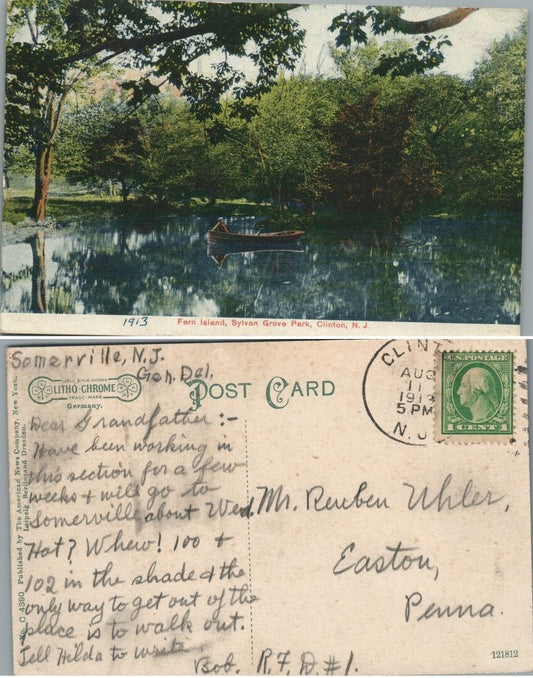 1913
Fern Island, Sylvan Grove Park, Clinton, N. J.
Somerville, N.J.
Gen. Del.
LITHO-CHROME
TRADE MARK
Germany.
POST CARD
CLINTON
AUG
11
1913
5 PM
N. J.
U.S. POSTAGE
1 CENT 1
Dear Grandfather :-
Have been working in
this section for a few
weeks + will go to
Somerville about Wed.
Hot? Whew! 100 +
102 in the shade & the
only way to get out of the
place is to walk out.
Tell Hilda to write.
Bob.
Mr. Reuben Uhler,
Easton,
Penna.
R.F.D. #1.
No. C 4390 Published by The American News Company, New York.
Leipzig, Berlin and Dresden.
121812